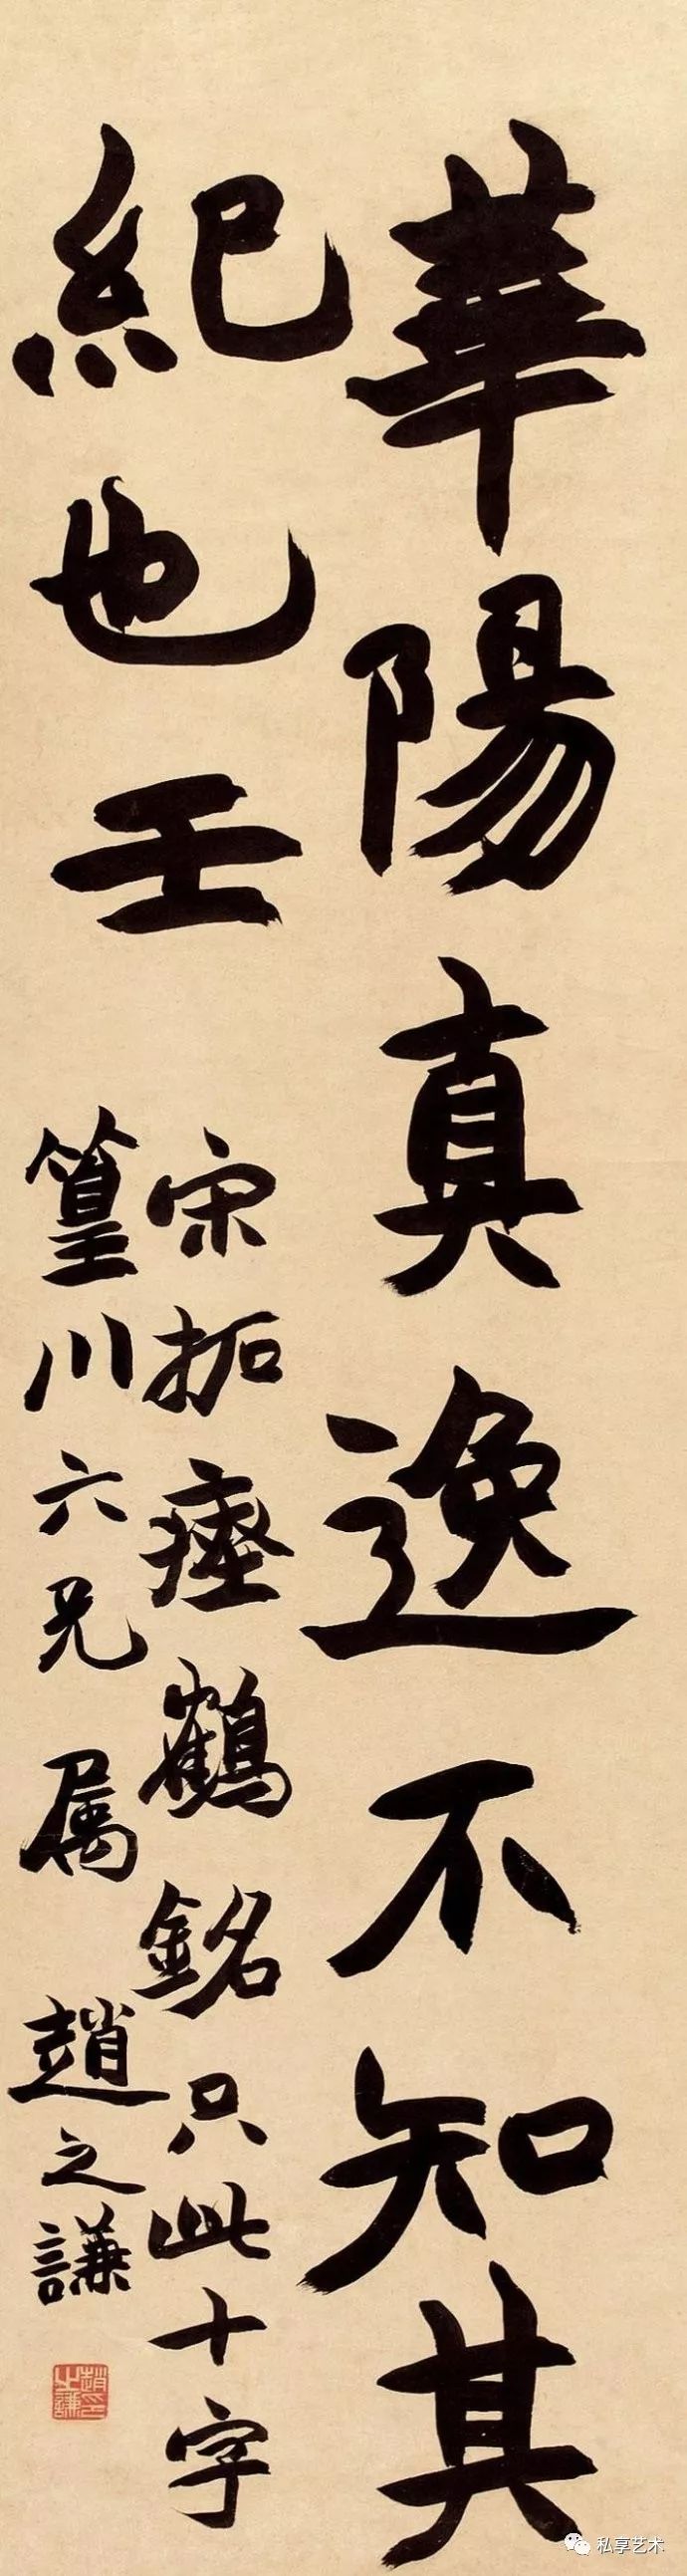 華陽真逸不知其
紀也壬
宋拓瘞鶴銘只此十字
篁川六兄属 趙之謙
趙之謙印
私享艺术